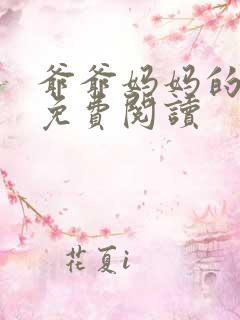 爺爺妈妈的
免費閱讀
花夏i